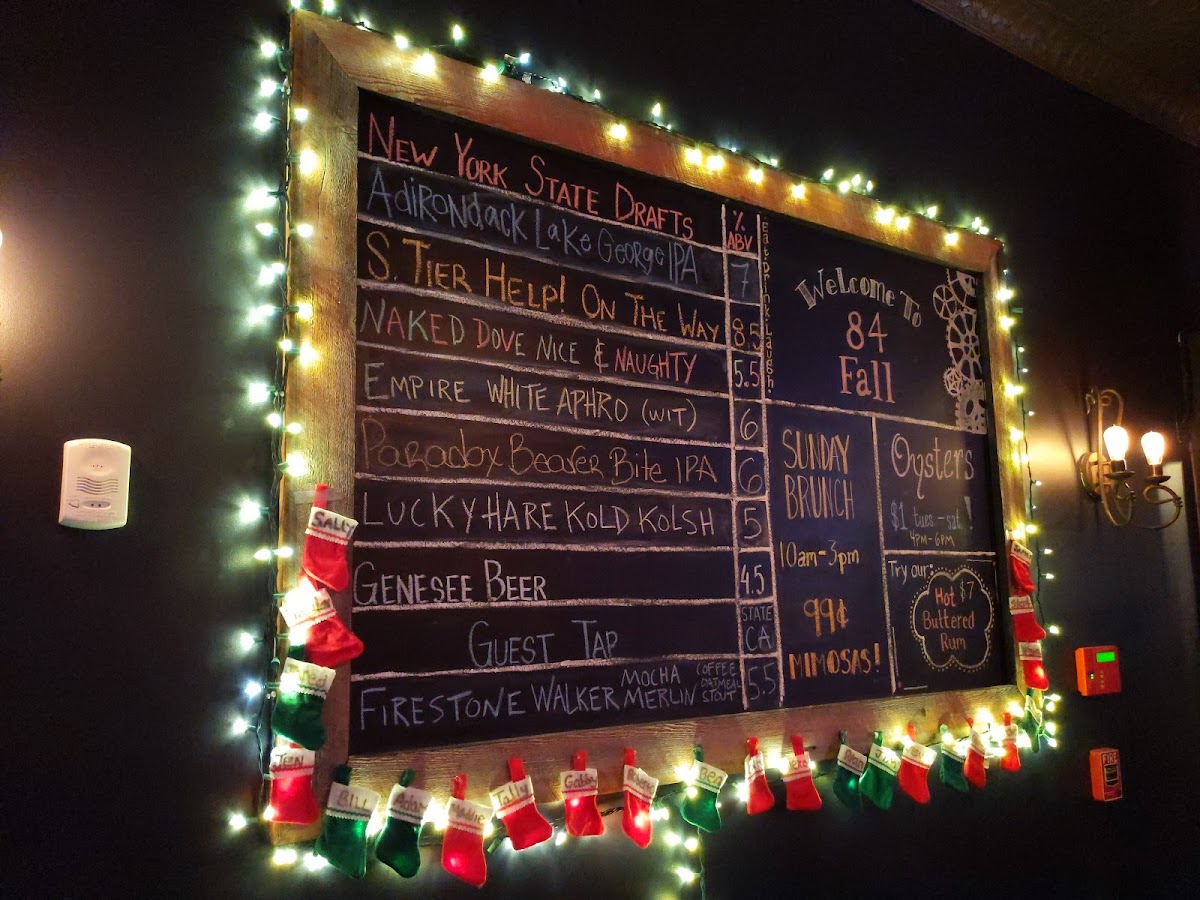 NEW YORK STATE DRAFTS
% ABV
Adirondack Lake George IPA 7
S. TIER HELP! ON THE WAY 8.5
NAKED DOVE NICE & NAUGHTY 5.5
EMPIRE WHITE APHRO (WIT) 6
Paradox Beaver Bite IPA 6
LUCKY HARE KOLD KOLSH 5
GENESEE BEER 4.5
GUEST TAP STATE CA
FIRESTONE WALKER MOCHA MERLIN COFFEE OATMEAL STOUT 5.5
eat, drink, laugh.
Welcome To
84
Fall
SUNDAY
BRUNCH
10am-3pm
99¢
MIMOSAS!
Oysters!
$1 tues-sat
4PM-6PM
Try our:
Hot $7
Buttered
Rum
SALLY
JEN
BILL
Adam
Tally
Gabby
FIRE